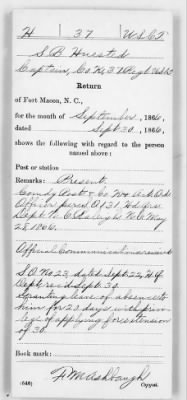 H 37 U.S.C.T.
S. B. Husted
Captain, Co. K, 37 Reg't U.S.C.T.
Return
of Fort Macon, N. C.,
for the month of September, 1866,
dated Sept. 30, 1866,
shows the following with regard to the person
named above:
Post or station
Remarks: Present.
Comdg Post & Co
O. 131 Hd. Qrs.
Dept. N. C. Raleigh N. C. May
28, 1866.
Official Communications received
S.O. No. 23, dated Sept. 22, H. Q.
Dept. rec'd Sept. 30.
Granting leave of absence to
him for 20 days with priv-
ilege of applying for extension
of 30.
Book mark:
F. M. Ashbaugh
(646) Copyist.